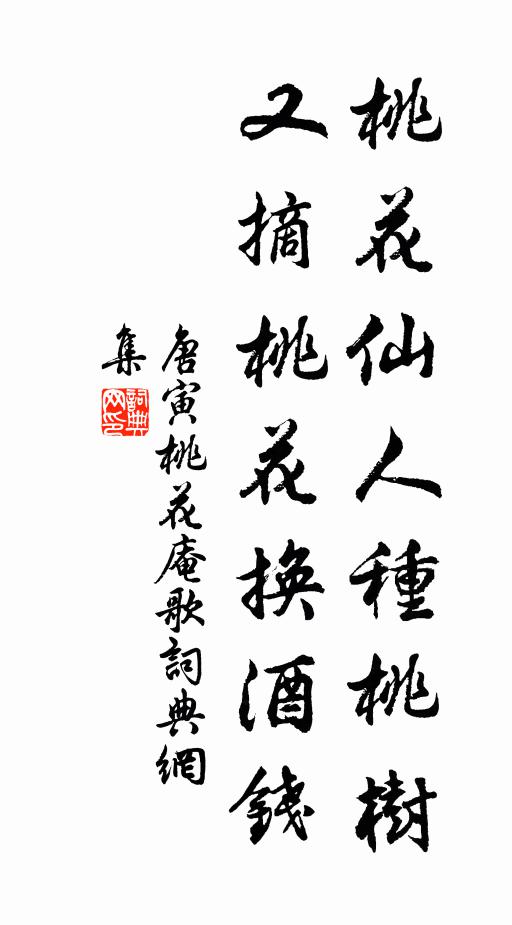 桃花仙人種桃樹
又摘桃花換酒錢
唐寅桃花庵歌詞典網
集
詞典網印